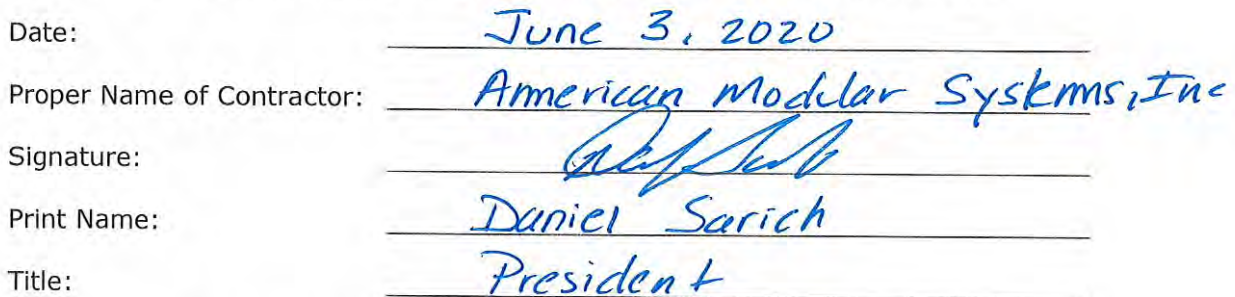 Date: June 3, 2020
Proper Name of Contractor: American Modular Systems, Inc
Signature:
Print Name: Daniel Sarich
Title: President